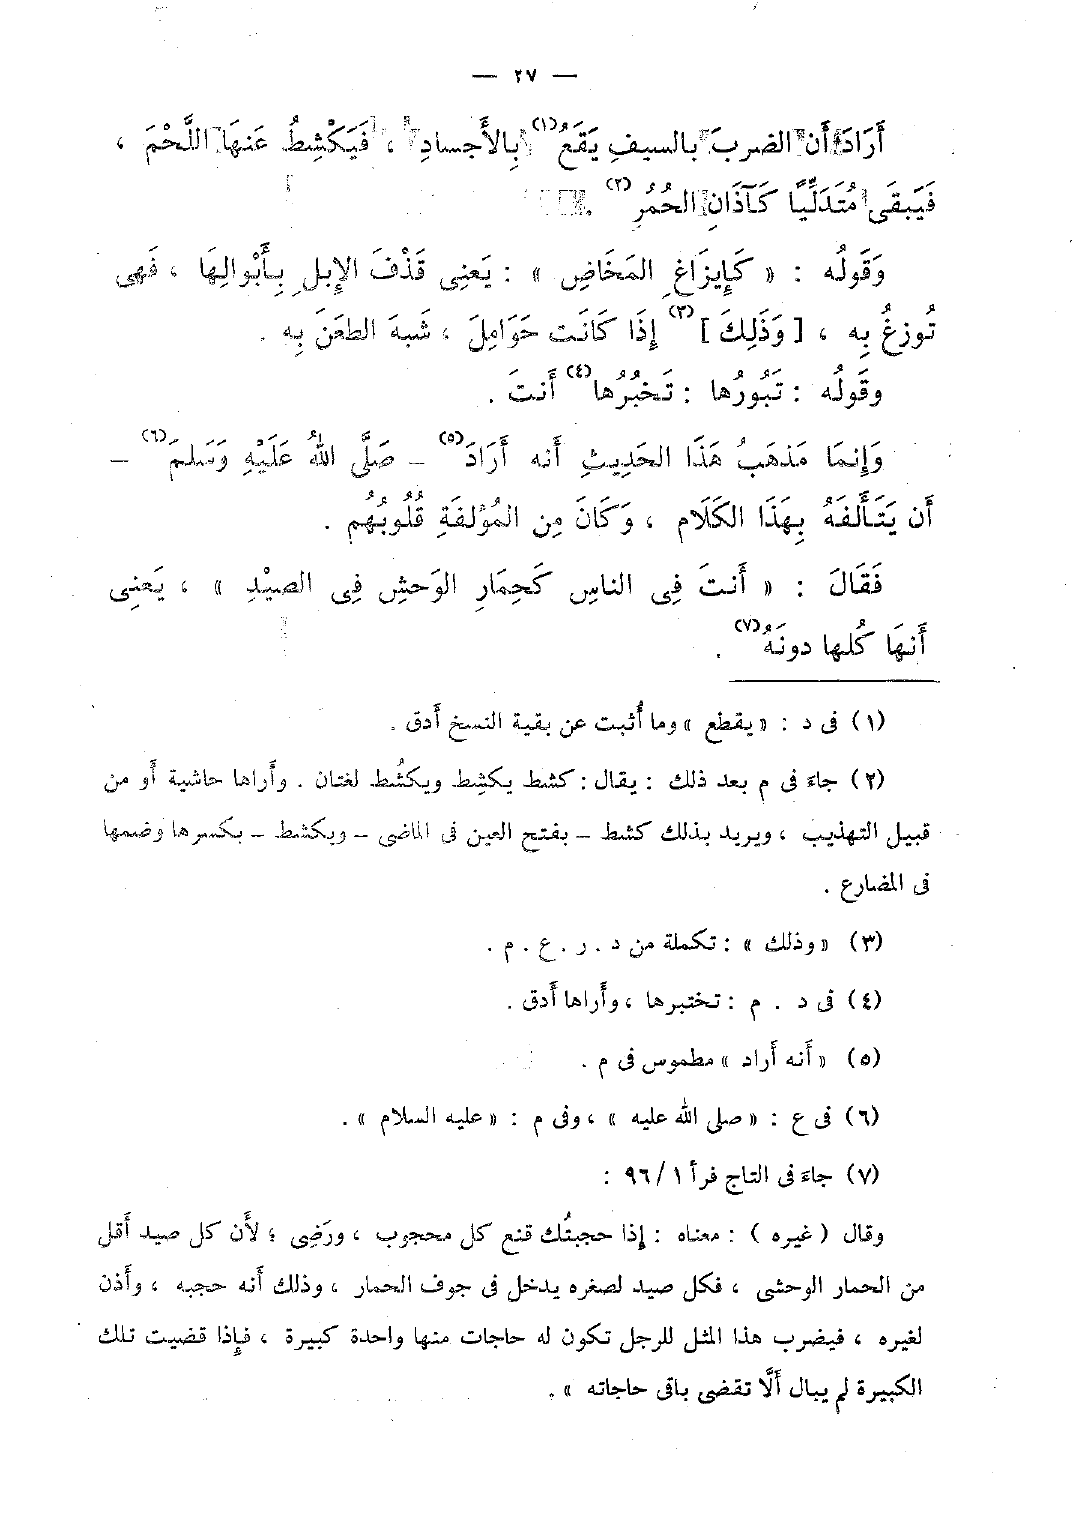 — ٢٧ —
أَرَادَ أَن الضربَ بالسيفِ يَقَعُ (١) بِالأَجسادِ ، فَيَكْشِطُ عَنهَا اللَّحْمَ ،
فَيَبقَى مُتَدَلِّيًا كَآذَانِ الحُمُرِ (٢) .
وَقَولُه : « كَإِيزَاغِ المَخَاضِ » : يَعنِى قَذْفَ الإِبلِ بِأَبْوالِهَا ، فَهى
تُوزِغُ بِه ، [ وَذَلِكَ ] (٣) إِذَا كَانَت حَوَامِلَ ، شَبهَ الطعَنَ بِه .
وقَولُه : تَبُورُها : تَخبُرُها (٤) أَنتَ .
وَإِنمَا مَذهَبُ هَذَا الحَدِيثِ أَنه أَرَادَ (٥) – صَلَّى اللهُ عَلَيْهِ وَسَلمَ (٦) –
أَن يَتَأَلَفَهُ بِهَذَا الكَلَام ، وَكَانَ مِن المُؤلفَةِ قُلُوبُهُم .
فَقَالَ : « أَنتَ فِى الناسِ كَحِمَارِ الوَحشِ فِى الصيْدِ » ، يَعنِى
أَنهَا كُلها دونَهُ (٧) .
(١) فى د : « يقطع » وما أُثبت عن بقية النسخ أَدق .
(٢) جاءَ فى م بعد ذلك : يقال : كشط يكشِط ويكشُط لغتان . وأَراها حاشية أَو من
قبيل التهذيب ، ويريد بذلك كشط – بفتح العين فى الماضى – ويكشط – بكسرها وضمها
فى المضارع .
(٣) « وذلك » : تكملة من د . ر . ع . م .
(٤) فى د . م : تختبرها ، وأَراها أَدق .
(٥) « أَنه أَراد » مطموس فى م .
(٦) فى ع : « صلى الله عليه » ، وفى م : « عليه السلام » .
(٧) جاءَ فى التاج فرأ ١ / ٩٦ :
وقال ( غيره ) : معناه : إِذا حجبتُك قنع كل محجوب ، ورَضِى ؛ لأَن كل صيد أَقل
من الحمار الوحشى ، فكل صيد لصغره يدخل فى جوف الحمار ، وذلك أَنه حجبه ، وأَذن
لغيره ، فيضرب هذا المثل للرجل تكون له حاجات منها واحدة كبيرة ، فإِذا قضيت تلك
الكبيرة لم يبال أَلَّا تقضى باقى حاجاته » .